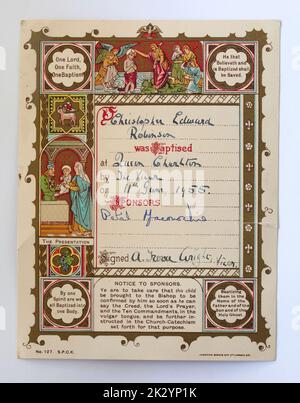 One Lord,
One Faith,
One Baptism
He that
Believeth and
is Baptized shall
be Saved.
Christopher Edward
Robinson
was Baptised
at Queen Charlton
by The Vicar
on 11th June 1955.
SPONSORS
THE PRESENTATION
Signed A. Vicar.
By one
Spirit are we
all Baptized into
one Body.
NOTICE TO SPONSORS.
Ye are to take care that this child
be brought to the Bishop to be
confirmed by him so soon as he can
say the Creed, the Lord's Prayer,
and the Ten Commandments, in the
vulgar tongue, and be further in-
structed in the Church-Catechism
set forth for that purpose.
Baptizing
them in the
Name of the
Father and of the
Son and of the
Holy Ghost
No. 127. S.P.C.K.
alamy
Image ID: 2K2YP1K
www.alamy.com